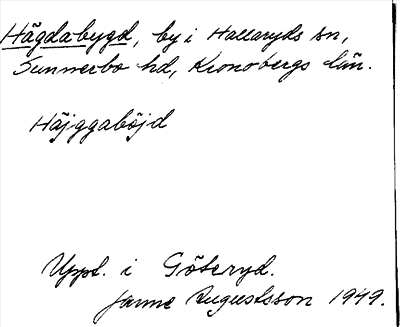 Hägdabygd, by i Hallaryds sn,
Sunnerbo hd, Kronobergs län.
Häjggabôjd
Uppt. i Göteryd.
Janne Augustsson 1949.